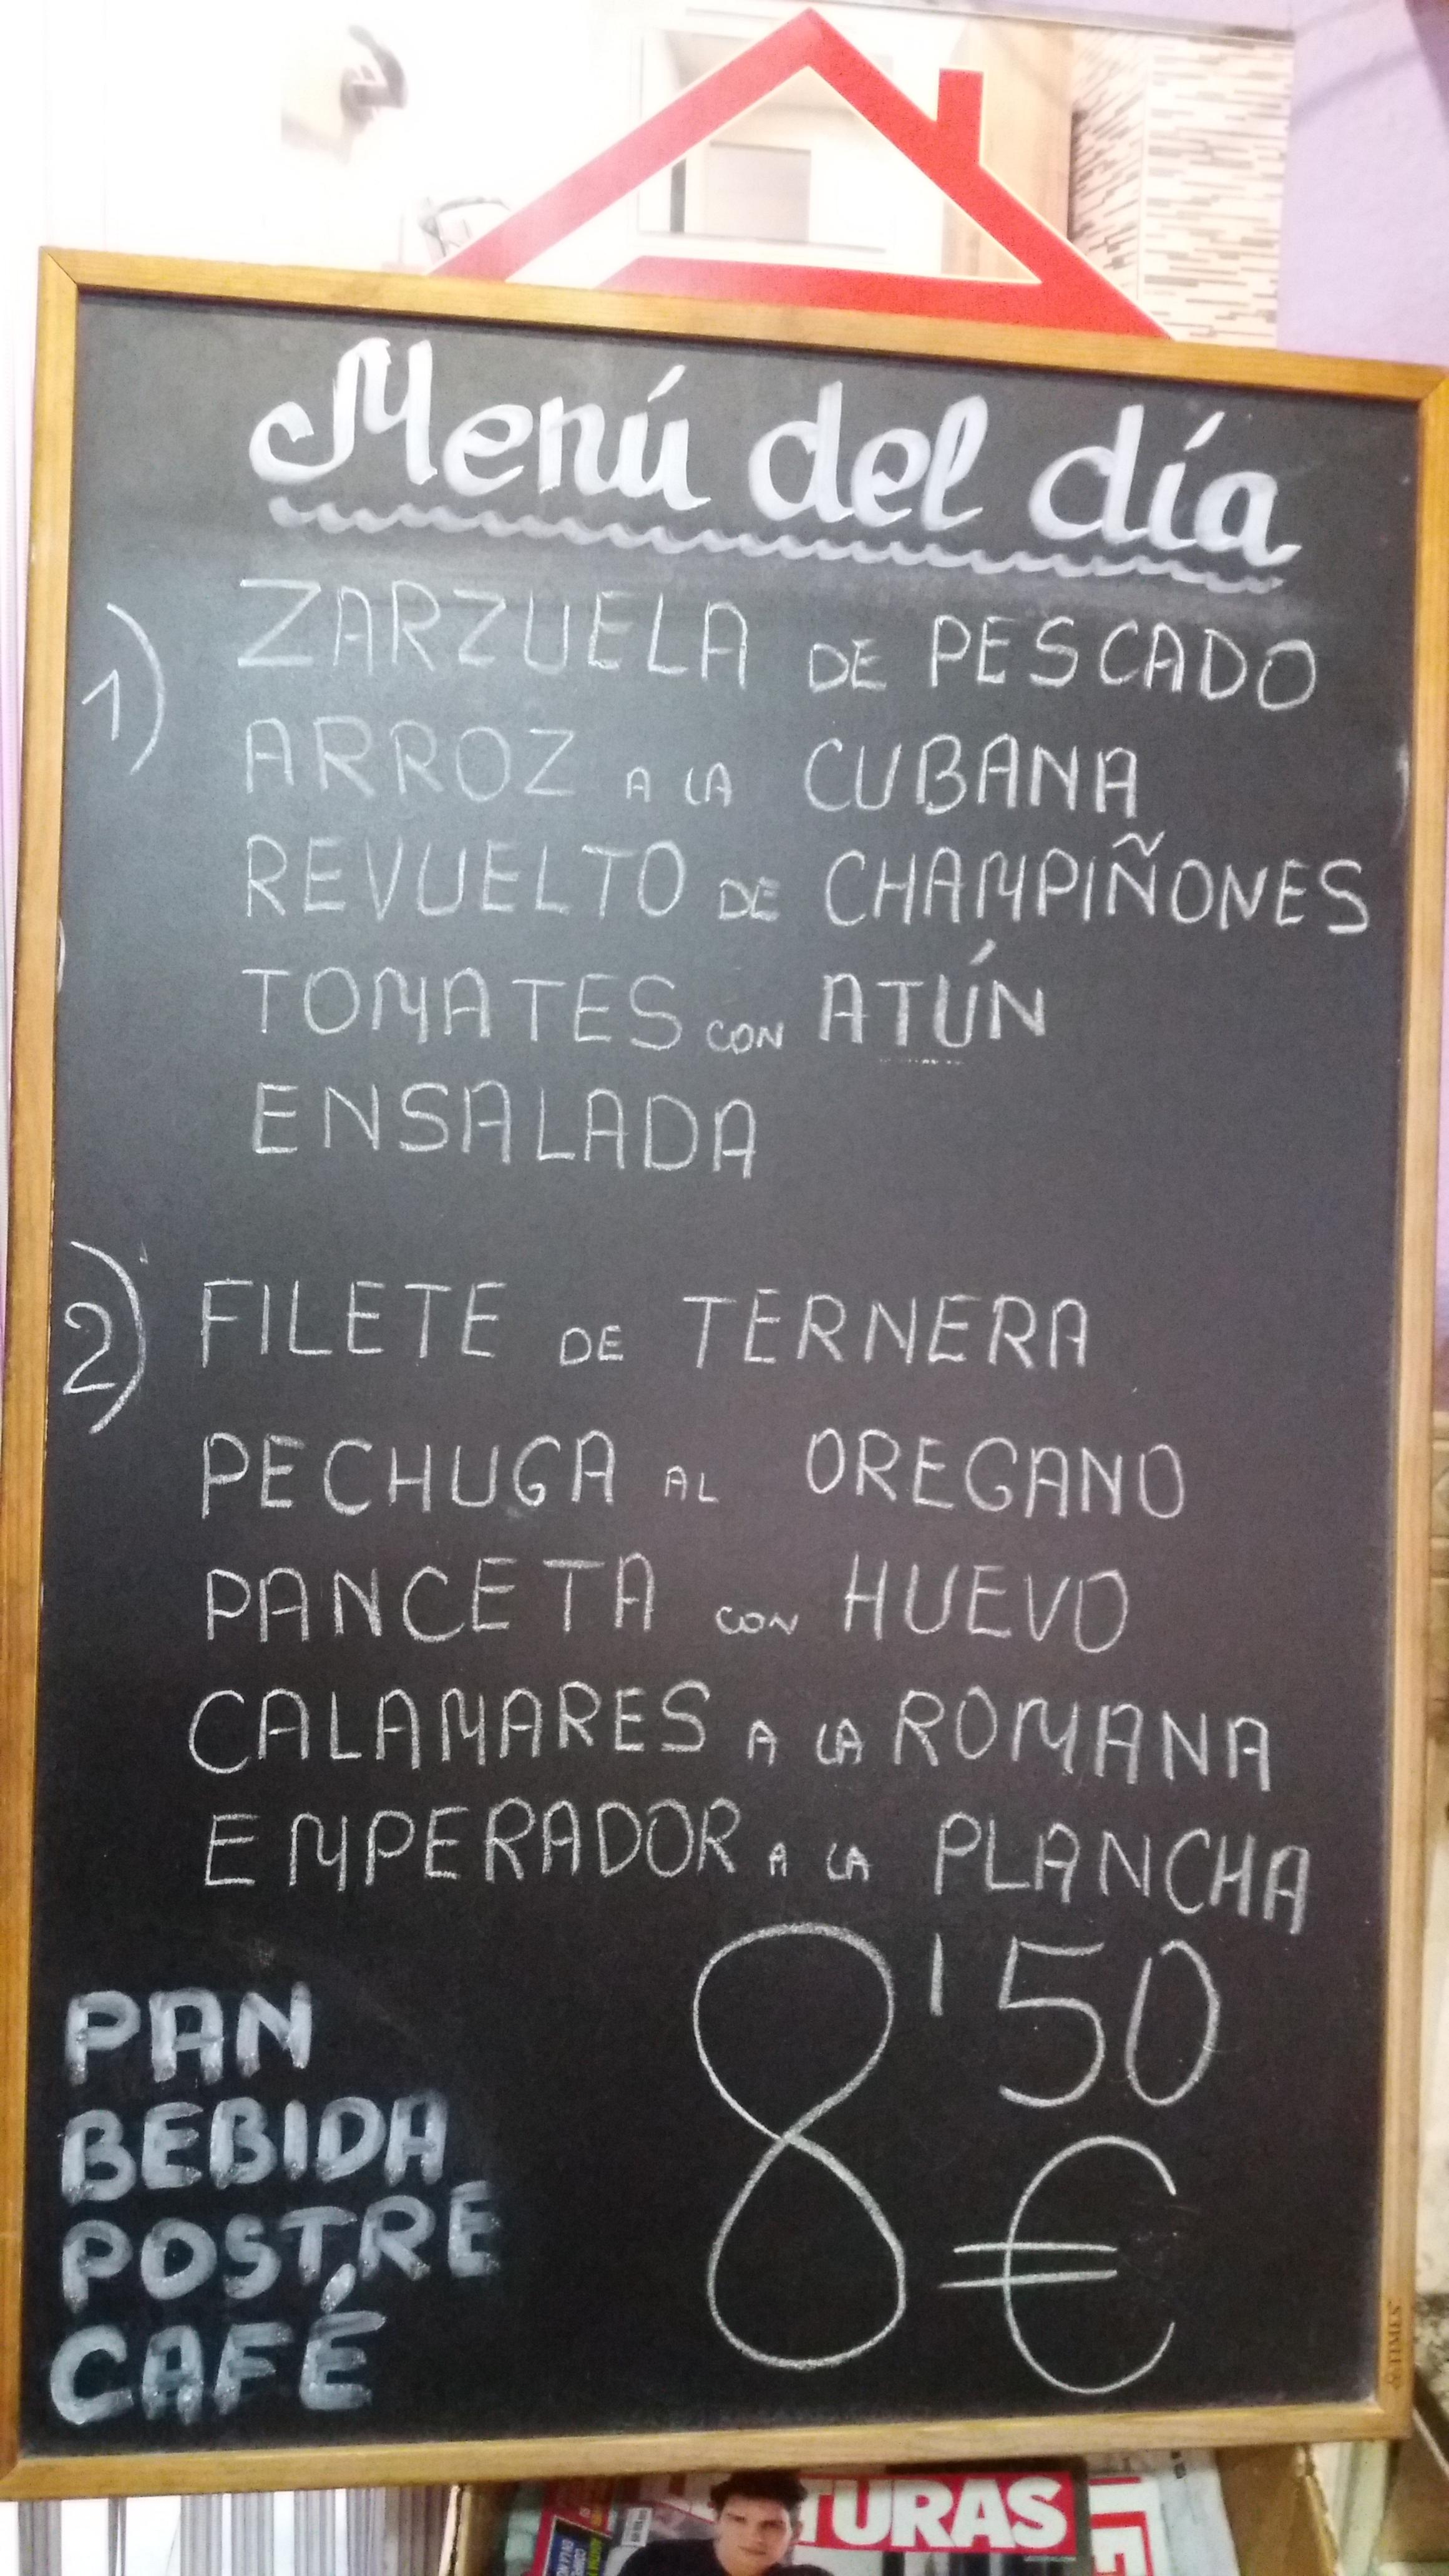 Menú del día
1) ZARZUELA DE PESCADO
ARROZ A LA CUBANA
REVUELTO DE CHAMPIÑONES
TOMATES CON ATÚN
ENSALADA
2) FILETE DE TERNERA
PECHUGA AL OREGANO
PANCETA CON HUEVO
CALAMARES A LA ROMANA
EMPERADOR A LA PLANCHA
8'50
€
PAN
BEBIDA
POSTRE
CAFÉ
TIMES
TURAS